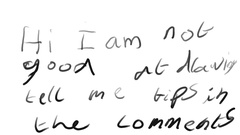 Hi I am not
good at drawing
tell me tips in
the comments